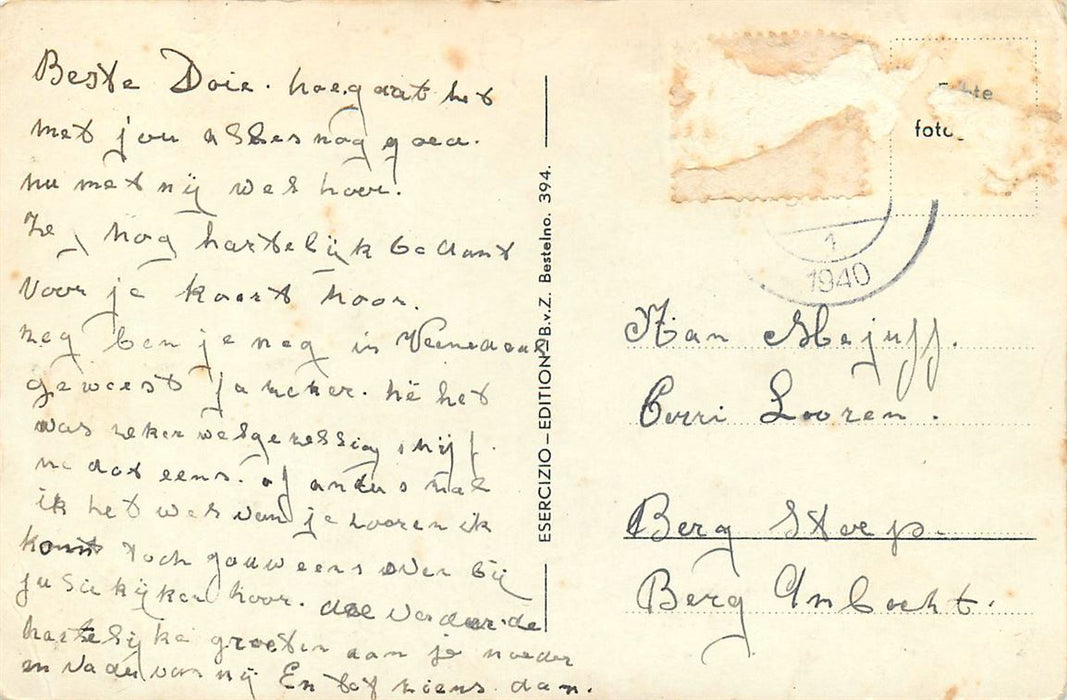 Beste Doie. hoe gaat het
met jou alles nog goed.
nu met mij wel hoor.
Ze, nog hartelijk bedant
voor je kaart hoor.
zeg ben je nog in Veenedaal
geweest ja zeker. hé het
was zeker wel gezellig, srijf
me dat eens. of anders zal
ik het wel van je hooren ik
komt toch gauw eens over bij
ju Sie kijken hoor. doe verder de
hartelijke groeten aan je moeder
en vader van mij En tot ziens dan.
ESERCIZIO — EDITION — B.v.Z. Bestelno. 394.
foto
1
1940
Aan Mejuff.
Corri Looren.
Berg Stoep.
Berg Ambacht.